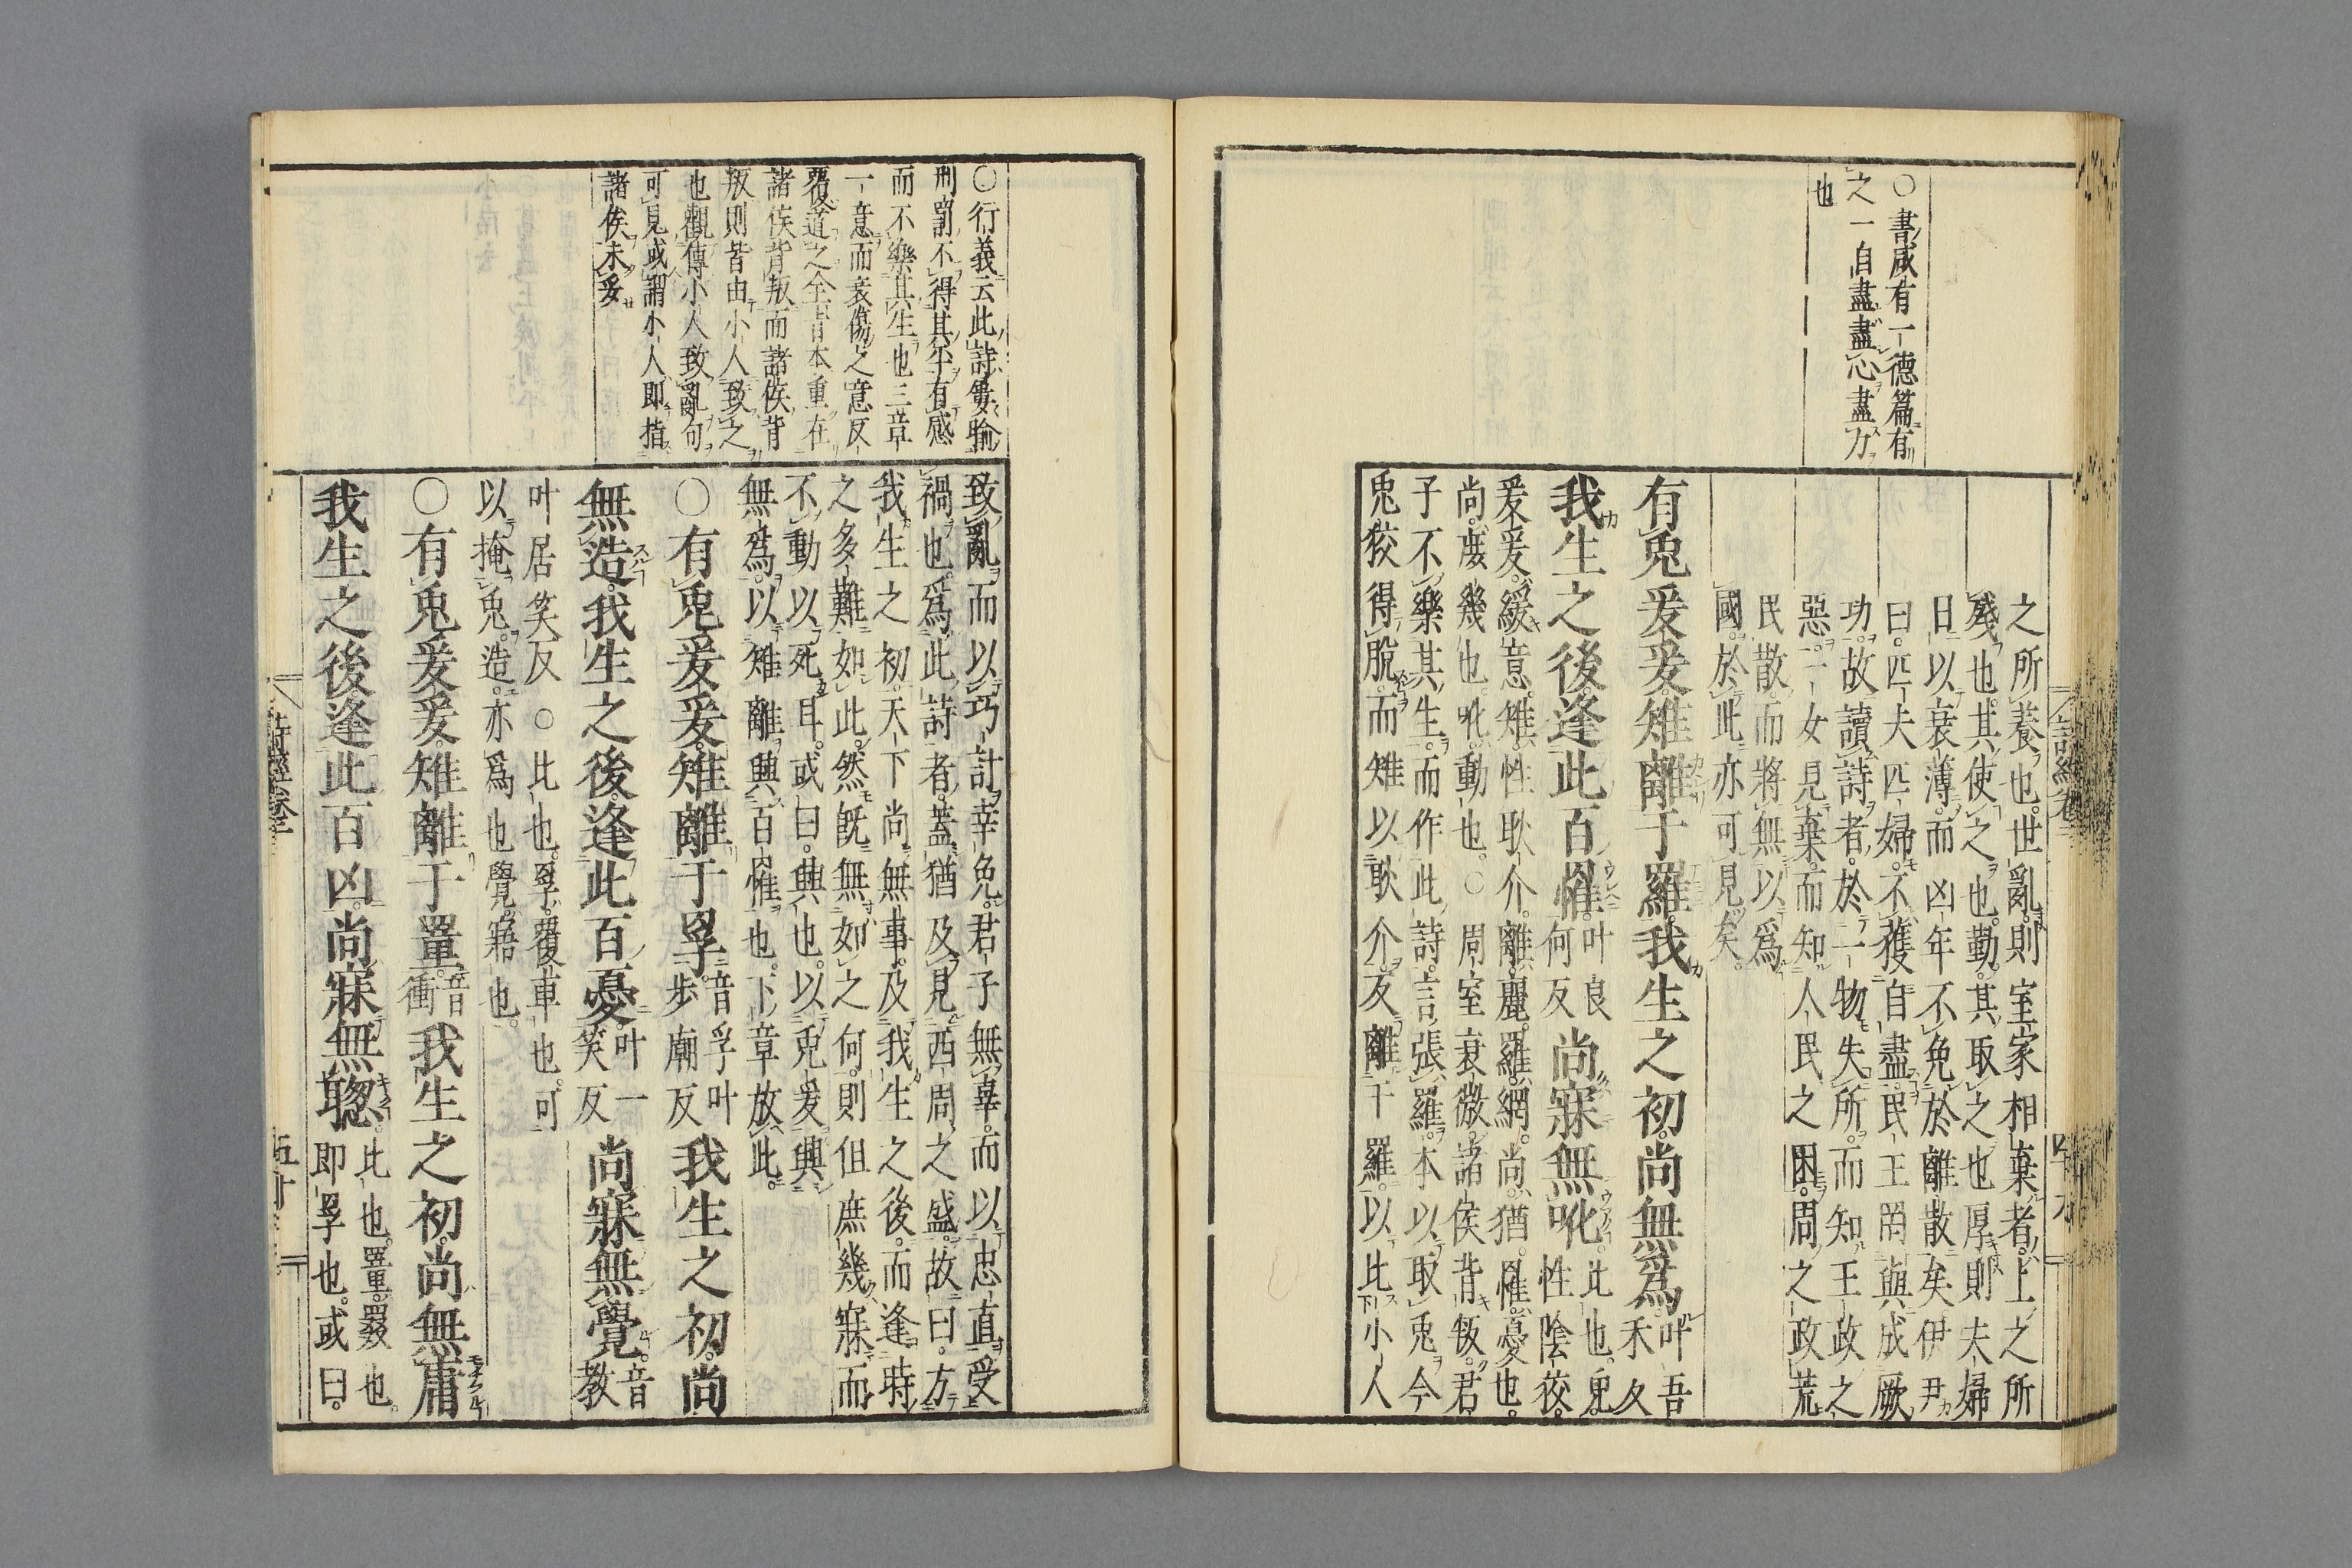 ○書咸有一德篇有
之一自盡盡心盡力
也
之所養也世亂則室家相棄者上之所
殘也其使之也勤其取之也厚則夫婦
日以衰薄而凶年不免於離散矣伊尹
曰匹夫匹婦不獲自盡民王罔與成厥
功故讀詩者於一物失所而知王政之
惡一女見棄而知人民之困周之政荒
民散而將無以爲
國於此亦可見矣
有兎爰爰雉離于羅我生之初尚無爲叶吾
禾反
我生之後逢此百罹叶良
何反尚寐無吪比也兎
性陰狡
爰爰緩意雉性耿介離麗羅網尚猶罹憂也
尚庶幾也吪動也○周室衰微諸侯背叛君
子不樂其生而作此詩言張羅本以取兎今
兎狡得脫而雉以耿介反離于羅以比小人
○行義云此詩屢喻
刑罰不得其平有感
而不樂其生也三章
一意而哀傷之意反
覆道之全旨本重在
諸侯背叛而諸侯背
叛則皆由小人致之
也觀傳小人致亂句
可見或謂小人卽指
諸侯未妥
致亂而以巧計幸免君子無辜而以忠直受
禍也爲此詩者蓋猶及見西周之盛故曰方
我生之初天下尚無事及我生之後而逢時
之多難如此然旣無如之何則但庶幾寐而
不動以死耳或曰興也以兎爰興
無爲以雉離興百罹也下章放此
○有兎爰爰雉離于罦音孚叶
步廟反我生之初尚
無造我生之後逢此百憂叶一
笑反尚寐無覺音
教
叶居笑反○比也罦覆車也可
以掩兎造亦爲也覺寤也
○有兎爰爰雉離于罿音
衝我生之初尚無庸
我生之後逢此百凶尚寐無聰比也罿罬也
卽罦也或曰